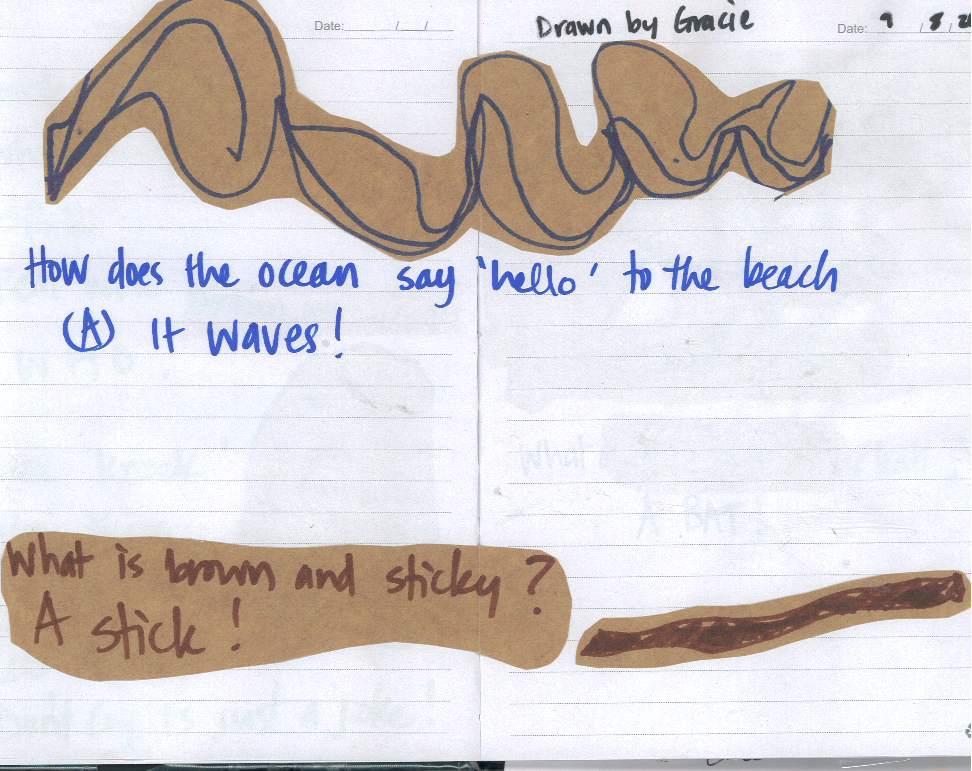 Date: / /
Drawn by Gracie
Date: 9 / 8 /
How does the ocean say 'hello' to the beach
(A) It waves!
What is brown and sticky?
A stick!